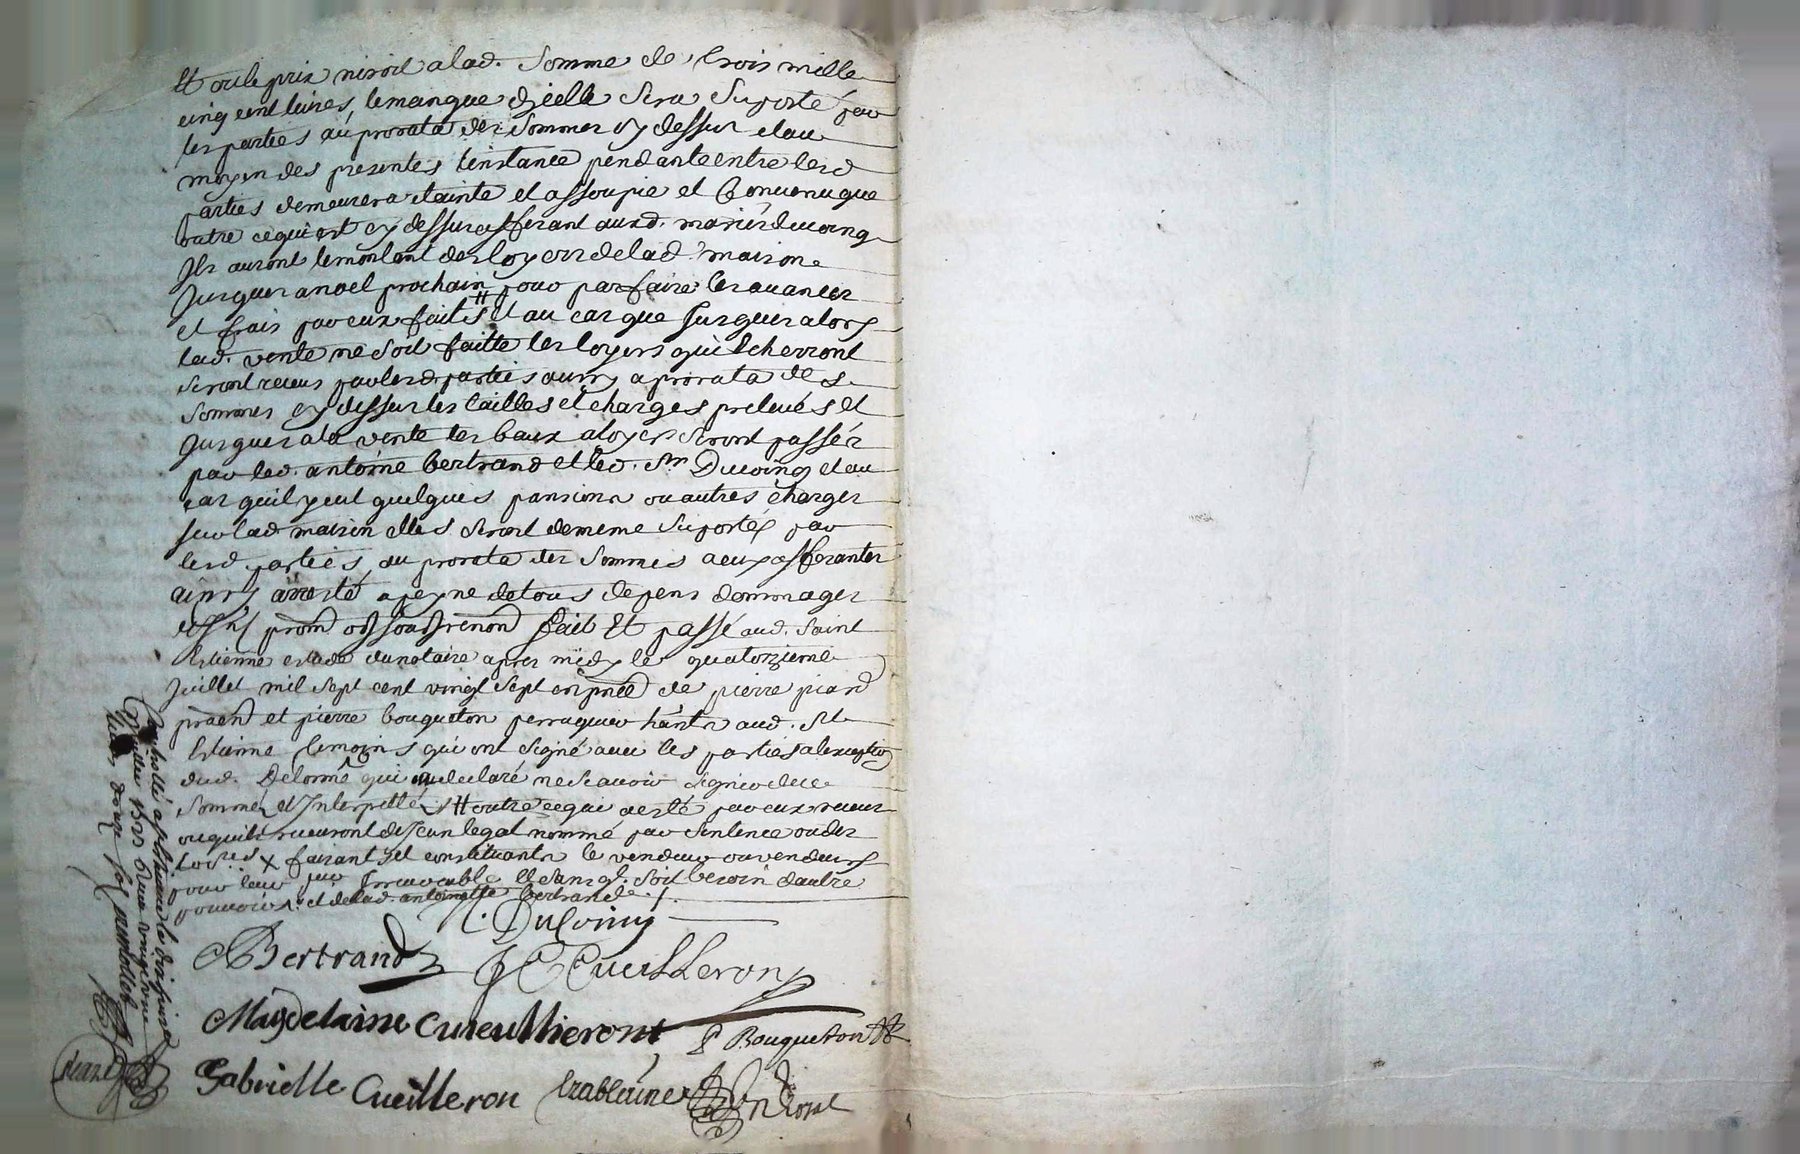 Et ou le prix niroit a lad. Somme de trois mille
cinq cent livres, le manque dicelle sera suporté par
les parties au prorata des Sommes cy dessus et au
moyen des presentes l'instance pendante entre lesd
parties demeurera eteinte et assoupie et Convenu que
outre ce qui est cy dessus afferant auxd. mariés ducoing
Ils auront le montant des loyers de lad maison
Jusques a noel prochain pour parfaire les avances
et frais par eux faits H et au cas que Jusques alors
lad. vente ne soit faitte les loyers qui echerront
seront receus par lesd parties aussy a prorata des
sommes cy dessus les tailles et charges prelevés et
Jusques a la vente les baux a loyers seront passés
par led. antoine bertrand et led. Sr Ducoing et au
cas quil y eut quelques pansions ou autres charges
sur lad maison elles seront de meme suportés par
lesd parties au prorata des sommes a eux afferantes
ainsy arresté a peyne de tous depens dommages
et Jnt prom obl soub renond fait Et passé aud. Saint
Estienne estude du notaire apres midy le quatorzieme
Juillet mil sept cent vingt sept en pnce de pierre piard
praend et pierre bouqueton perruquier hants aud. St
Estienne temoins qui ont signé avec les parties a lexception
dud. Delorme qui a declaré ne scavoir signer de ce
sommé et Interpellé H outre ce qui a esté par eux receus
ou quils recevront du legat nommé par sentence ou des
X faisant et constituants le vendeur ou vendeurs
pour leur pur Irrevocable et sans ql. soit besoin dautre
pouvoir et de lad. antoinette bertrand ./.
Ducoing
Bertrand
Cueilleron
Magdelaine Cueullieront
P Bouqueton
Gabrielle Cueilleron
Controllé a st estienne le
Juillet 1727 Receu